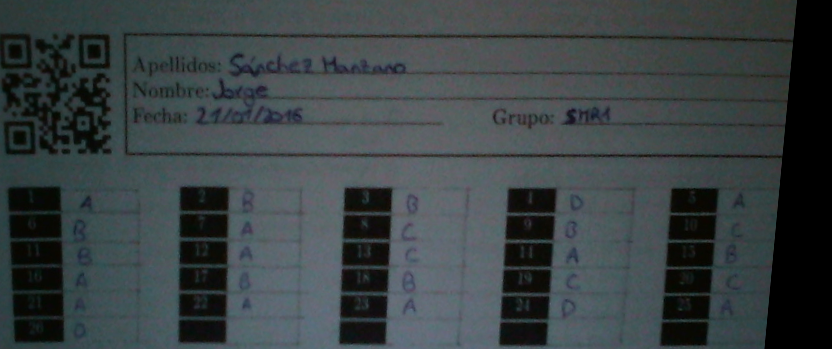 Apellidos: Sánchez Manzano
Nombre: Jorge
Fecha: 21/01/2016 Grupo: SMR1
1 A 2 B 3 B 4 D 5 A
6 B 7 A 8 C 9 B 10 C
11 B 12 A 13 C 14 A 15 B
16 A 17 B 18 B 19 C 20 C
21 A 22 A 23 A 24 D 25 A
26